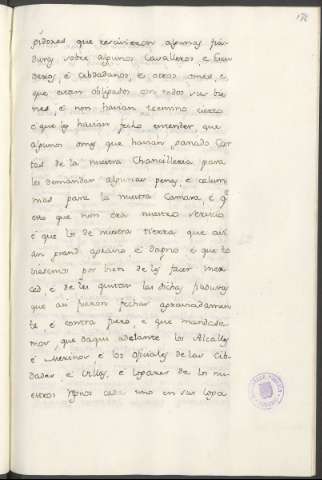 178
pidores que recivieron algunas fia-
durias sobre algunos Cavalleros, e Escu-
deros, é cibdadanos, é otros omes, e
que eran obligados con todos sus bie-
nes, é non havian termino cierto
e que les havian fecho entender, que
algunos omes que havian ganado Car-
tas de la nuestra Chancilleria para
les demandar algunas penas, e calum-
nias para la nuestra Camara, e q.e
esto que non era nuestro servicio
é que los de nuestra tierra que avi-
an grand agravio, é dagno e que to-
viesemos por bien de les facer mer-
ced e de les quitar las dichas fiadurias
que asi fueron fechas agraviadamen-
te, é contra fuero, e que mandase-
mos que daqui adelante los Alcalles
é Merinos é los oficiales de las Cib-
dades, é Villas, e logares de los nu-
estros Regnos cada uno en sus loga-